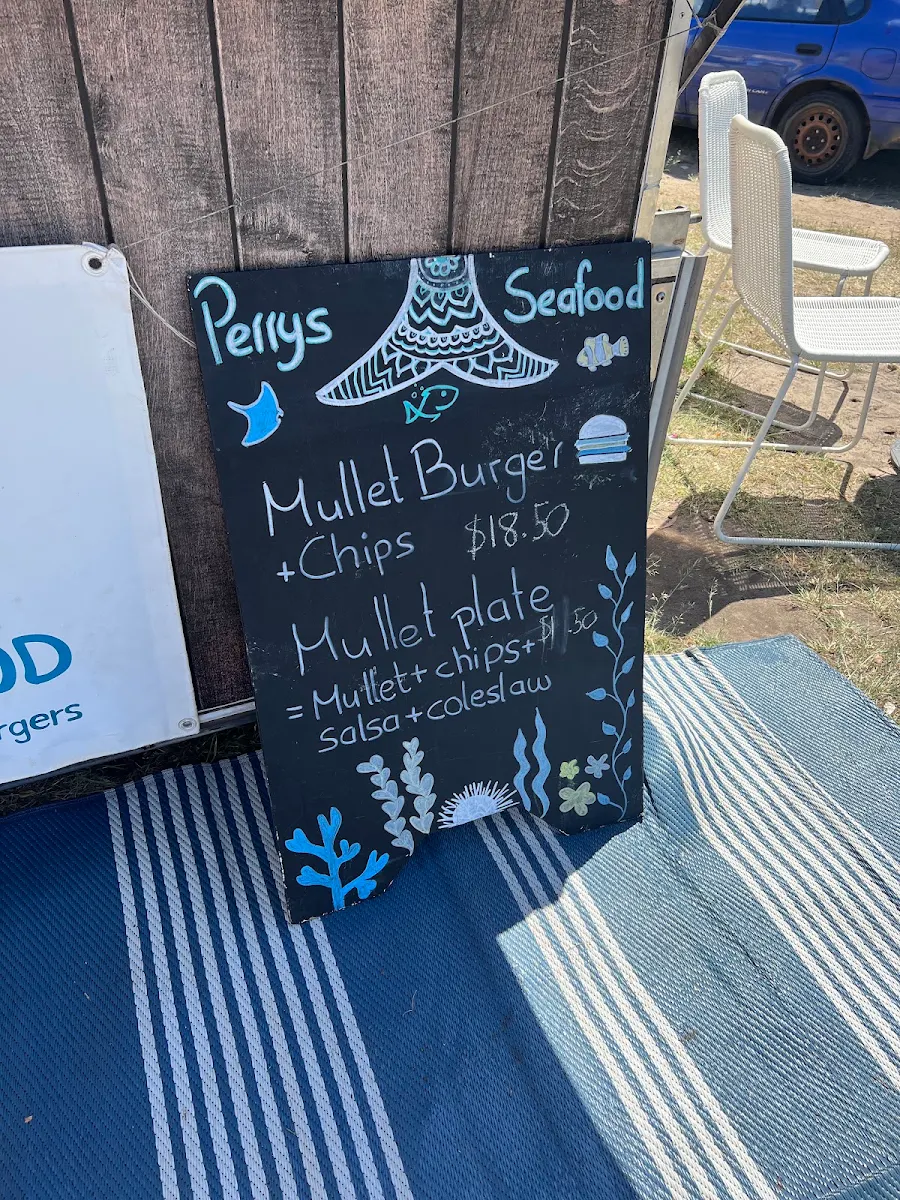 Perrys Seafood
Mullet Burger
+Chips $18.50
Mullet plate
=Mullet+chips+
salsa+coleslaw
OD
rgers